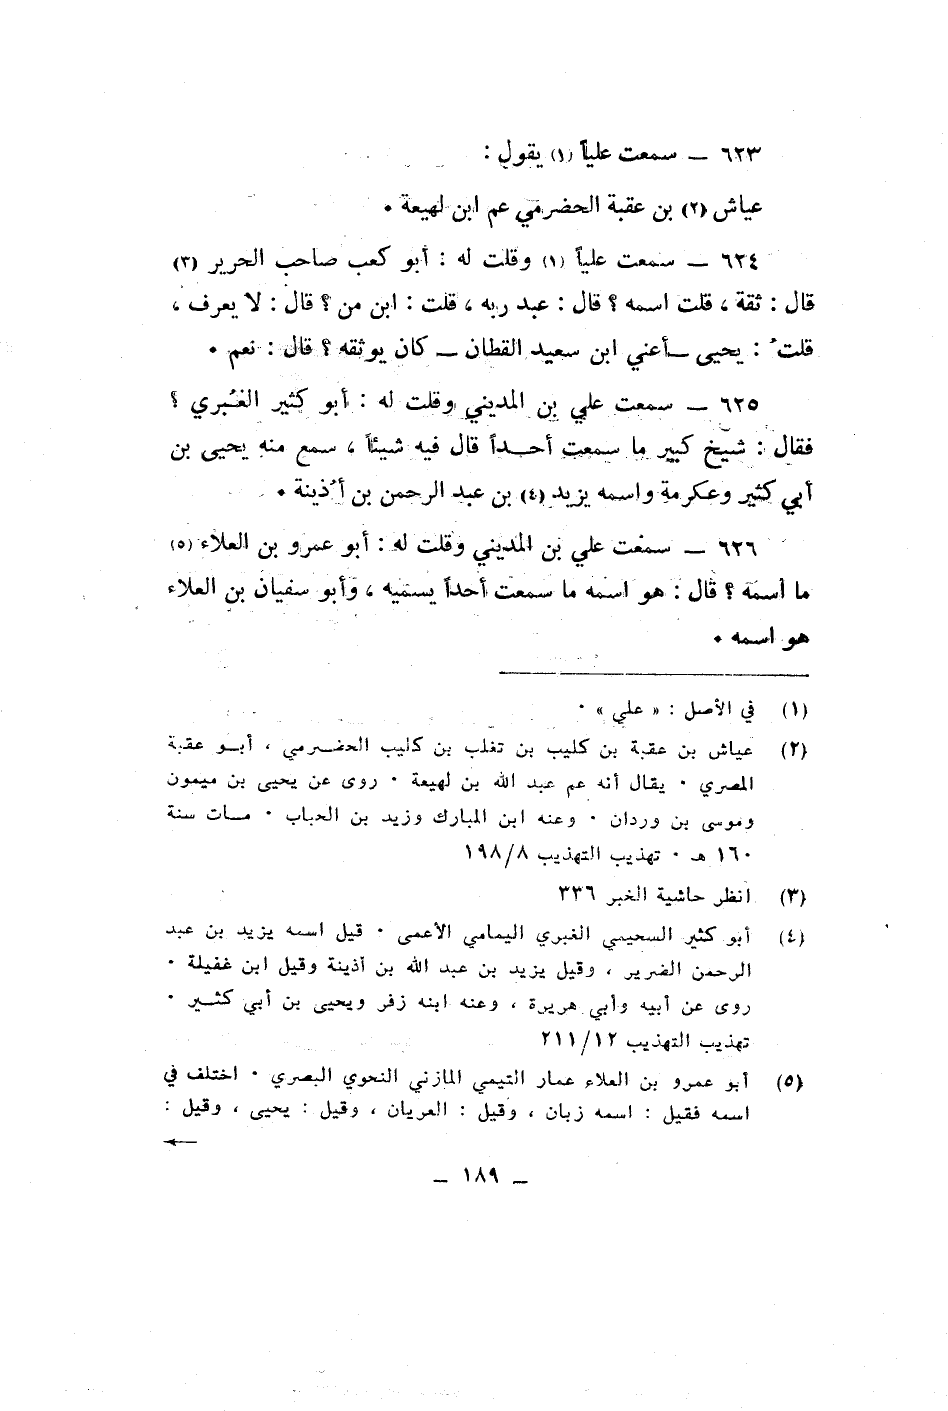 ٦٢٣ ــ سمعت علياً (١) يقول :
عياش (٢) بن عقبة الحضرمي عم ابن لهيعة •
٦٢٤ ــ سمعت علياً (١) وقلت له : أبو كعب صاحب الحرير (٣)
قال : ثقة ، قلت اسمه ؟ قال : عبد ربه ، قلت : ابن من ؟ قال : لا يعرف ،
قلتُ : يحيى ــ أعني ابن سعيد القطان ــ كان يوثقه ؟ قال : نعم •
٦٢٥ ــ سمعت علي بن المديني وقلت له : أبو كثير الغُبري ؟
فقال : شيخ كبير ما سمعت أحـــداً قال فيه شيئاً ، سمع منه يحيى بن
أبي كثير وعكرمة واسمه يزيد (٤) بن عبد الرحمن بن أُذينة •
٦٢٦ ــ سمعت علي بن المديني وقلت له : أبو عمرو بن العلاء (٥)
ما أسمه ؟ قال : هو اسمه ما سمعت أحداً يسميه ، وأبو سفيان بن العلاء
هو اسمه •
(١) في الأصل : « علي » •
(٢) عياش بن عقبة بن كليب بن تغلب بن كليب الحضـرمي ، أبــو عقبة
المصري • يقال أنه عم عبد الله بن لهيعة • روى عن يحيى بن ميمون
وموسى بن وردان • وعنه ابن المبارك وزيد بن الحباب • مــات سنة
١٦٠ هـ • تهذيب التهذيب ١٩٨/٨
(٣) انظر حاشية الخبر ٣٣٦
(٤) أبو كثير السحيمي الغبري اليمامي الأعمى • قيل اسمه يزيد بن عبد
الرحمن الضرير ، وقيل يزيد بن عبد الله بن أذينة وقيل ابن غفيلة •
روى عن أبيه وأبي هريرة ، وعنه ابنه زفر ويحيى بن أبي كثــير •
تهذيب التهذيب ٢١١/١٢
(٥) أبو عمرو بن العلاء عمار التيمي المازني النحوي البصري • اختلف في
اسمه فقيل : اسمه زبان ، وقيل : العريان ، وقيل : يحيى ، وقيل :
←
ــ ١٨٩ ــ